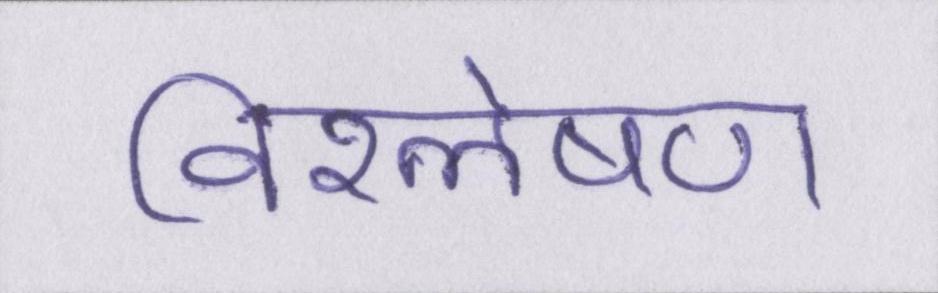 विश्लेषण